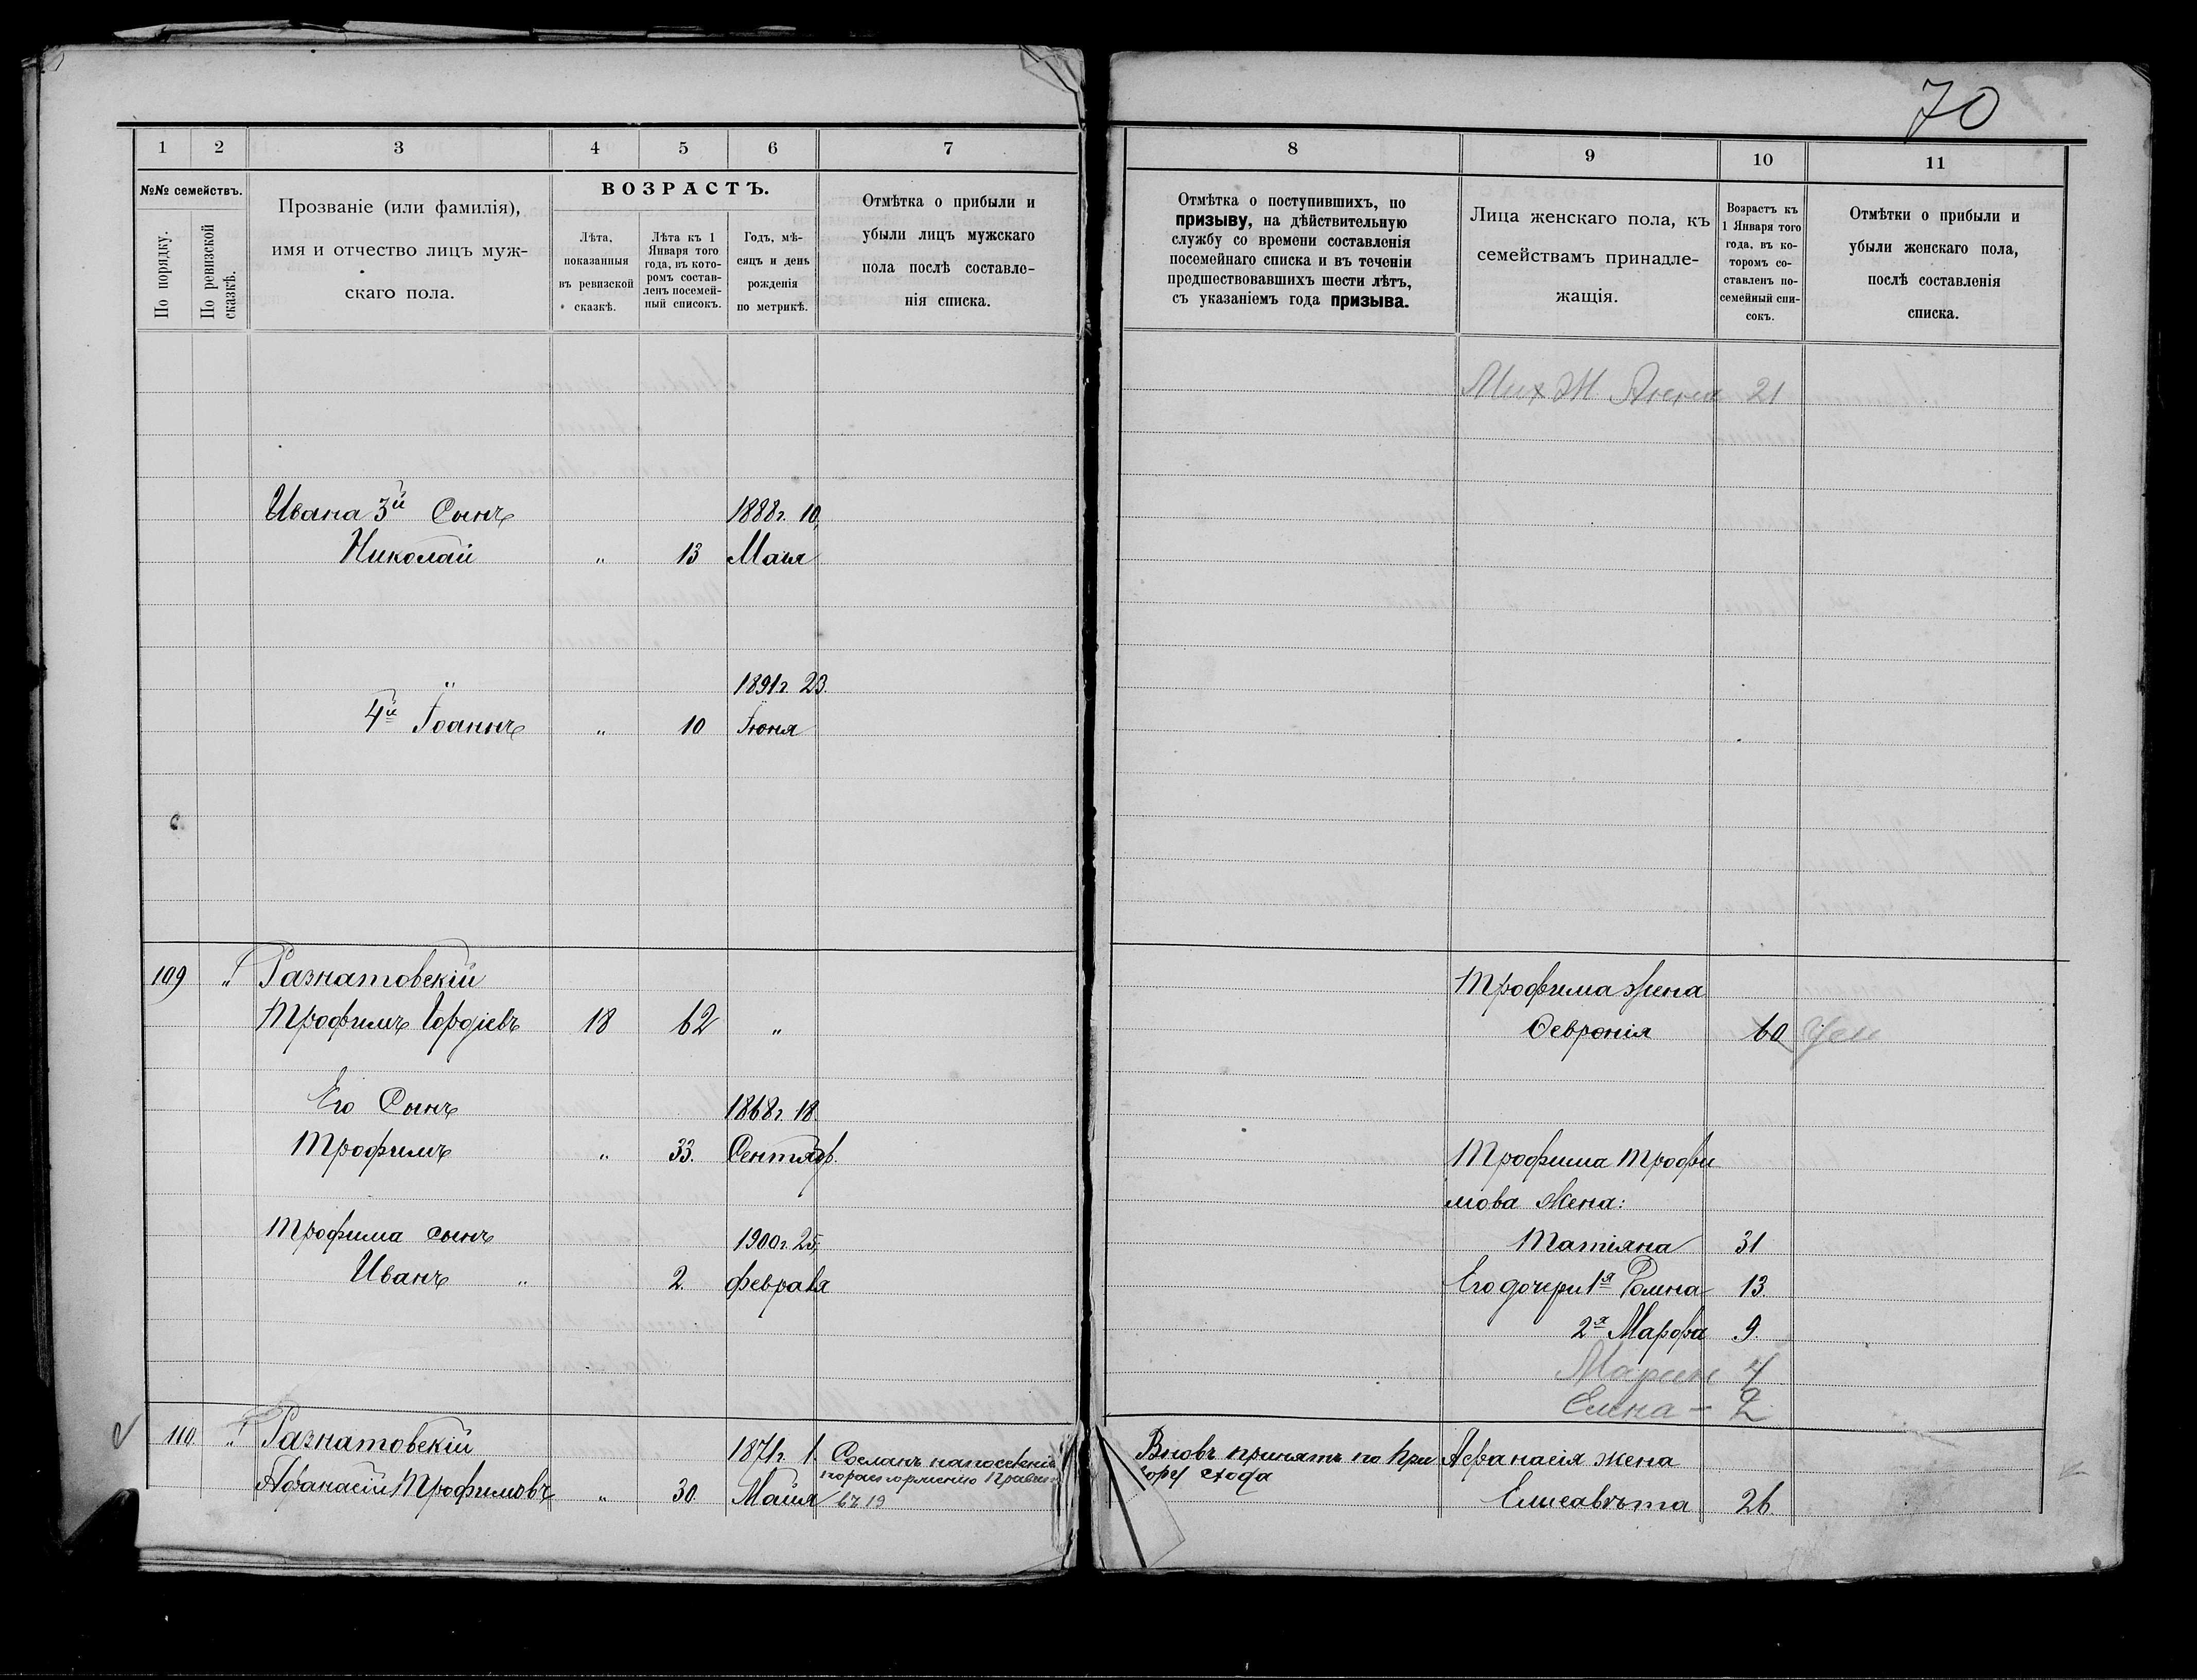 70
1 2 3 4 5 6 7
№№ семействъ.
По порядку.
По ревизской сказкѣ.
Прозваніе (или фамилія),
имя и отчество лицъ муж-
скаго пола.
ВОЗРАСТЪ.
Лѣта,
показанныя
въ ревизской
сказкѣ.
Лѣта къ 1
Января того
года, въ кото-
ромъ состав-
ленъ посемей-
ный списокъ.
Годъ, мѣ-
сяцъ и день
рожденія
по метрикѣ.
Отмѣтка о прибыли и
убыли лицъ мужскаго
пола послѣ составле-
нія списка.
Ивана 3й Сынъ 1888г. 10,
Николай " 13 Маія
" 1891г. 23.
4й Іоаннъ " 10 Іюня
109 " Разнатовскій
Трофимъ Гордіевъ 18 62 "
Его Сынъ 1868г. 18.
Трофимъ " 33. Сентябр.
Трофима сынъ 1900г. 25,
Иванъ " 2. февраля
110 " Разнатовскій 1871г. 1. Сосланъ на поселеніе
по распоряженію Правит
Афанасій Трофимовъ " 30. Маія въ 19
8 9 10 11
Отмѣтка о поступившихъ, по
призыву, на дѣйствительную
службу со времени составленія
посемейнаго списка и въ теченіи
предшествовавшихъ шести лѣтъ,
съ указаніемъ года призыва.
Лица женскаго пола, къ
семействамъ принадле-
жащія.
Возрастъ къ
1 Января того
года, въ ко-
торомъ со-
ставленъ по-
семейный спи-
сокъ.
Отмѣтки о прибыли и
убыли женскаго пола,
послѣ составленія
списка.
Мих Ж 21
Трофима жена
Февронія 60
Трофима Трофи
мова Жена:
Татіяна 31
Его дочери 1я 13.
2я Марфа 9.
Марин 4
Елена - 2
Вновъ принятъ по при Афанасія жена
гору схода
Елисавѣта 26.